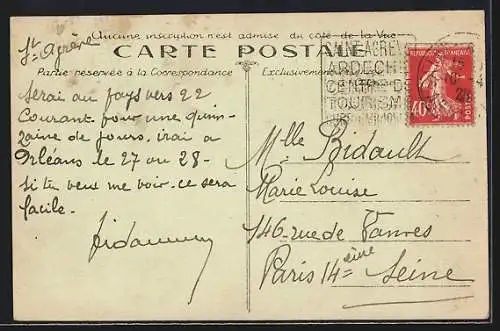 Aucune inscription n'est admise du côté de la Vue
St Agrève
CARTE POSTALE
Partie réservée à la Correspondance
Exclusivement
Serai au pays vers 22
Courant pour une quin-
zaine de jours, irai a
Orléans le 27 ou 28-
Si tu veux me voir. ce sera
facile.
SAINT-AGREVE
ARDECHE
CENTRE DE
TOURISME
REPUBLIQUE FRANÇAISE
40c
Mlle Bidault
Marie Louise
146 rue de Vanves
Paris 14=ème Seine